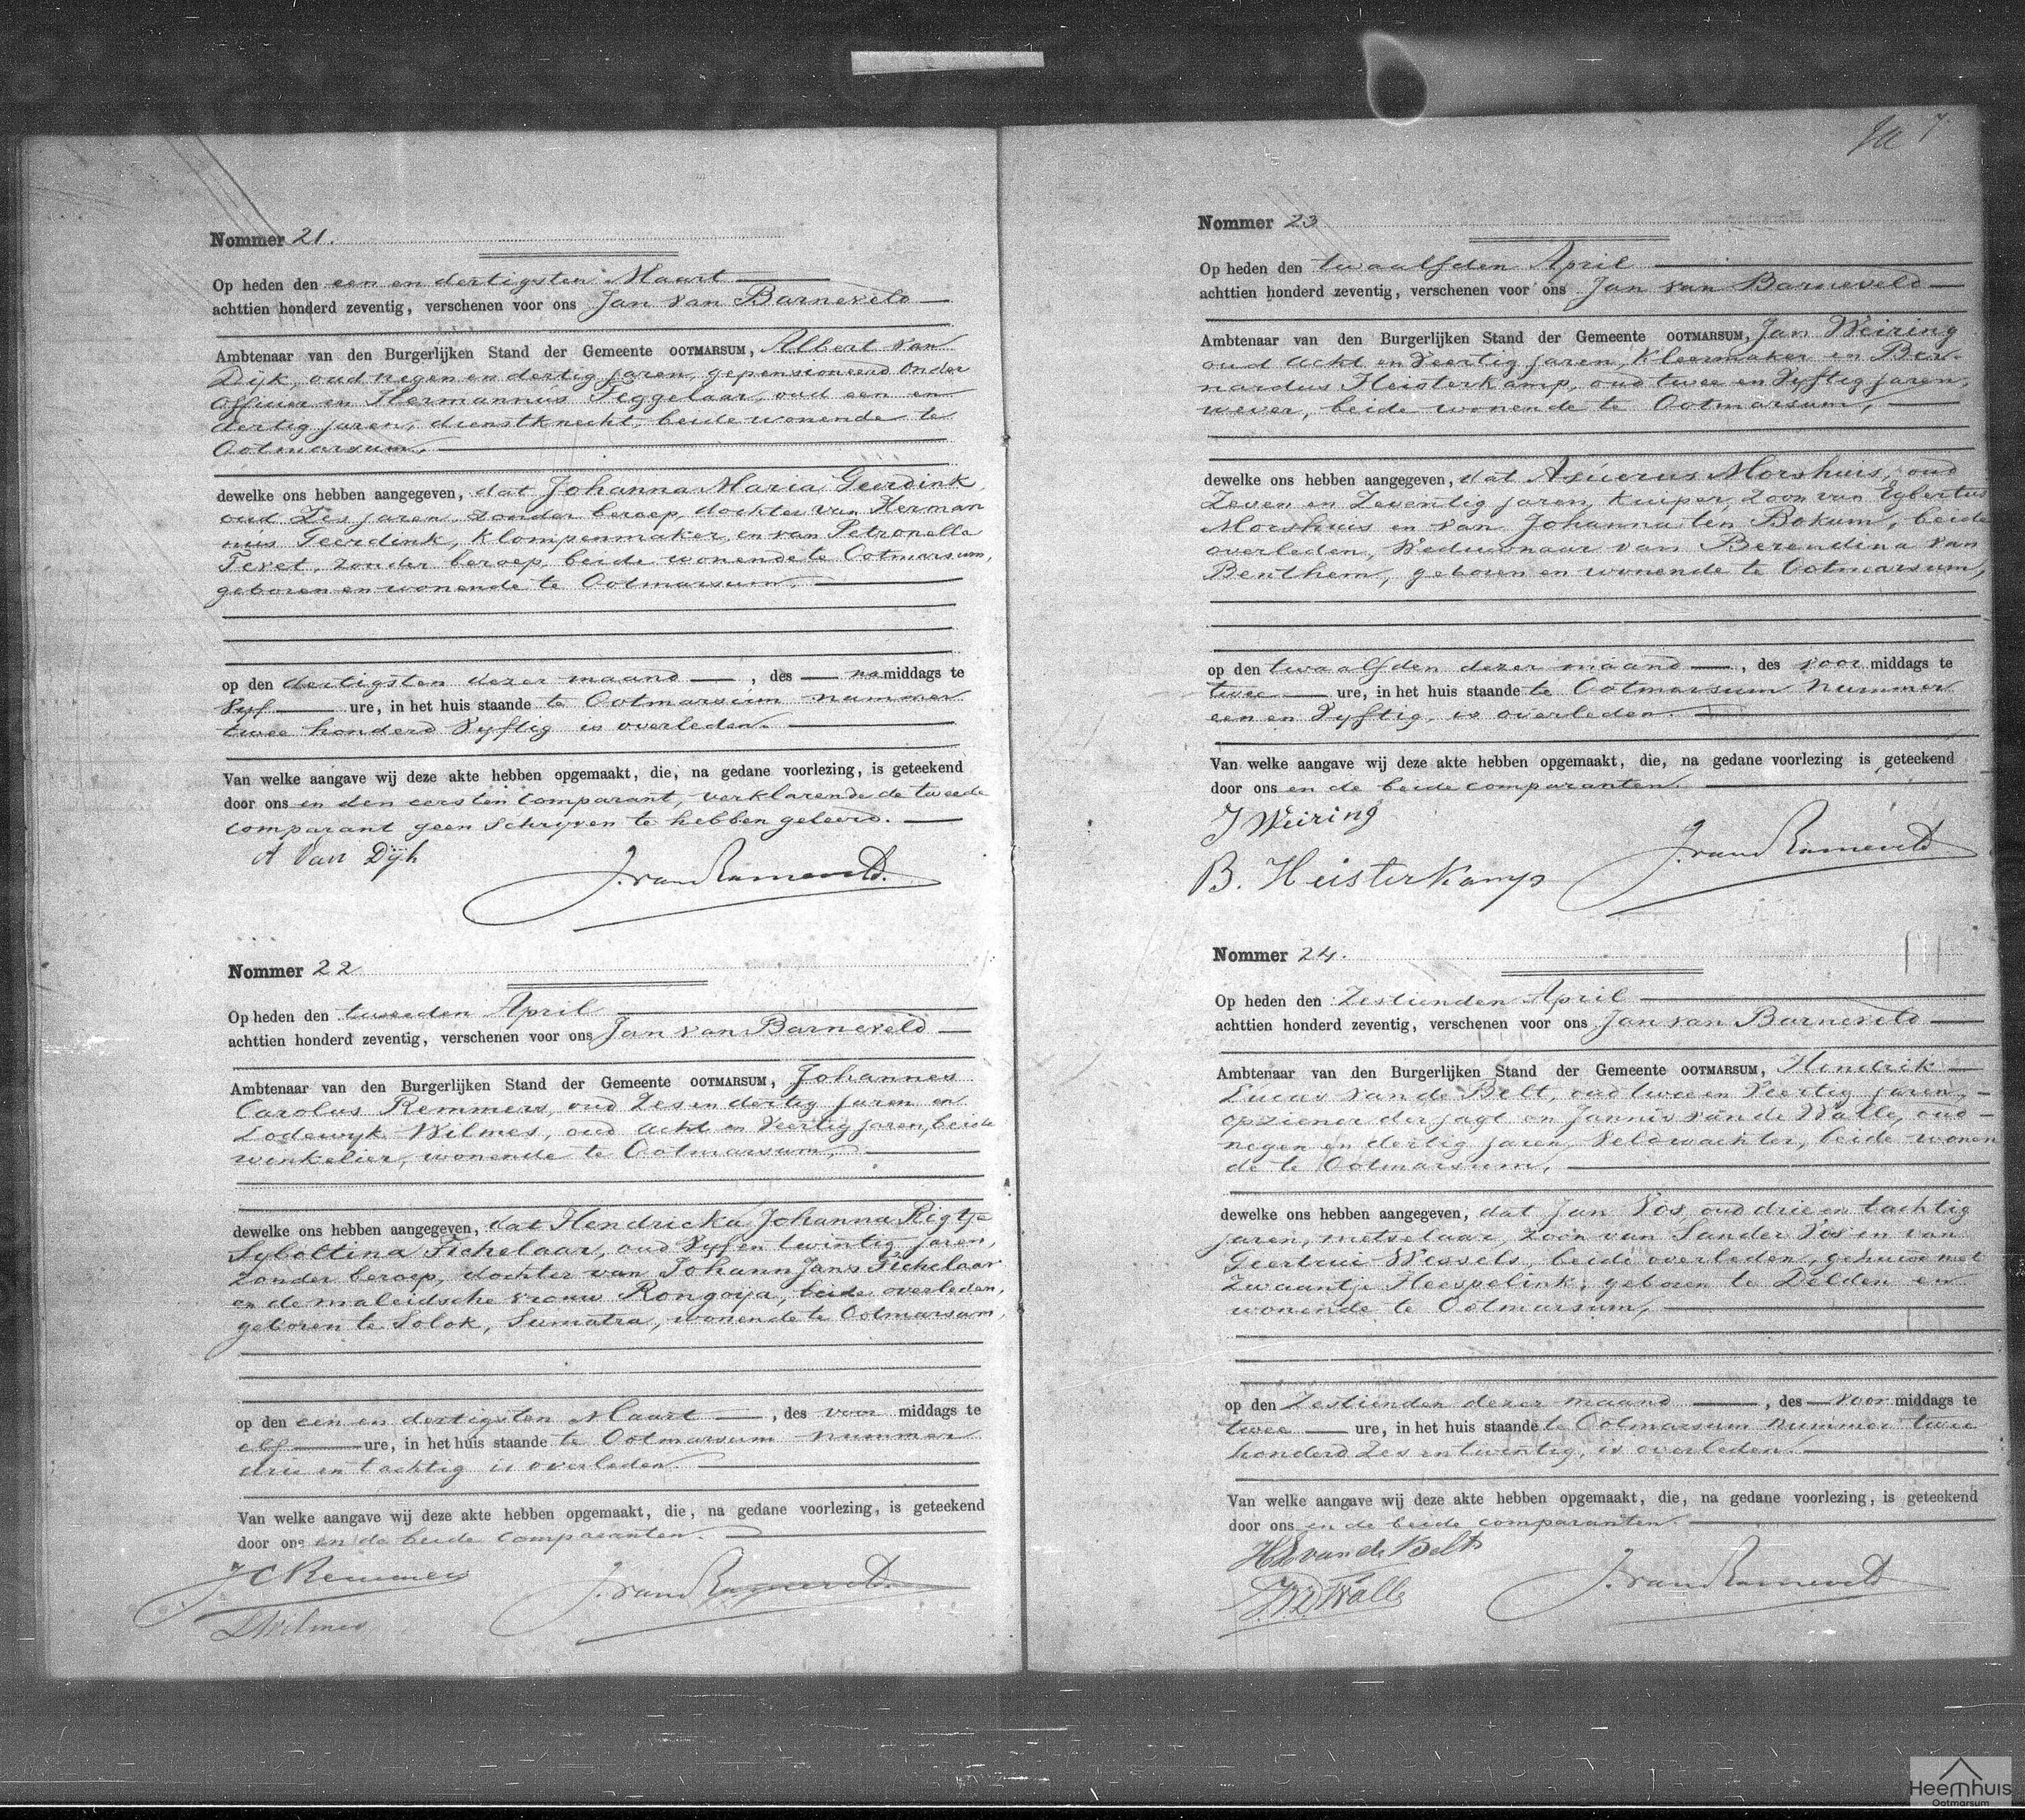 Nommer 21.
Op heden den een en dertigsten Maart
achttien honderd zeventig, verschenen voor ons Jan van Barneveld
Ambtenaar van den Burgerlijken Stand der Gemeente OOTMARSUM, Albert van
Dijk, oud negen en dertig jaren, gepensioneerd onder
officier en Hermannus Tiggelaar, oud een en
dertig jaren, dienstknecht, beide wonende te
Ootmarsum,
dewelke ons hebben aangegeven, dat Johanna Maria Geerdink
oud Zes jaren, zonder beroep, dochter van Herman
nus Geerdink, Klompenmaker, en van Petronella
zonder beroep, beide wonende te Ootmarsum,
geboren en wonende te Ootmarsum,
op den dertigsten dezer maand, des na middags te
Vijf ure, in het huis staande te Ootmarsum nummer
twee honderd Vijftig is overleden.
Van welke aangave wij deze akte hebben opgemaakt, die, na gedane voorlezing, is geteekend
door ons en den eersten Comparant, verklarende de tweede
Comparant geen Schrijven te hebben geleerd.
A Van Dijk
J. van Barneveld.
Nommer 22
Op heden den tweeden April
achttien honderd zeventig, verschenen voor ons Jan van Barneveld
Ambtenaar van den Burgerlijken Stand der Gemeente OOTMARSUM, Johannes
Carolus Remmers, oud Zes en dertig jaren en
Lodewijk Wilmes, oud Acht en Veertig jaren, beide
winkelier, wonende te Ootmarsum,
dewelke ons hebben aangegeven, dat Hendricka Johanna Rigtje
Sybottina Tichelaar, oud Vijf en twintig jaren,
Zonder beroep, dochter van Johann Jans Tichelaar
en de maleidsche vrouw Rongoija, beide overleden,
geboren te Solok, Sumatra, wonende te Ootmarsum,
op den een en dertigsten Maart, des voor middags te
elf ure, in het huis staande te Ootmarsum nummer
drie en tachtig is overleden.
Van welke aangave wij deze akte hebben opgemaakt, die, na gedane voorlezing, is geteekend
door ons en de beide Comparanten.
J C Remmers
J. van Barneveld.
L Wilmes
7
Nommer 23
Op heden den twaalfden April
achttien honderd zeventig, verschenen voor ons Jan van Barneveld
Ambtenaar van den Burgerlijken Stand der Gemeente OOTMARSUM, Jan Weiring
oud Acht en Veertig jaren, Kleermaker en Ber-
nardus Heisterkamp, oud twee en Vijftig jaren,
wever, beide wonende te Ootmarsum,
dewelke ons hebben aangegeven, dat Asuerus Morshuis, oud
Zeven en Zeventig jaren, Kuiper, Zoon van Egbertus
Morshuis en van Johanna ten Bokum, beide
overleden, Weduwnaar van Berendina van
Benthem, geboren en wonende te Ootmarsum,
op den twaalfden dezer maand, des voor middags te
twee ure, in het huis staande te Ootmarsum Nummer
een en Vijftig, is overleden.
Van welke aangave wij deze akte hebben opgemaakt, die, na gedane voorlezing is geteekend
door ons en de beide comparanten.
J Weiring
J. van Barneveld
B. Heisterkamp
Nommer 24.
Op heden den Zestienden April
achttien honderd zeventig, verschenen voor ons Jan van Barneveld
Ambtenaar van den Burgerlijken Stand der Gemeente OOTMARSUM, Hendrik
Lucas van de Belt, oud twee en Veertig jaren,
opziener der jagt en Jannis van de Walle, oud
negen en dertig jaren, Veldwachter, beide wonen
de te Ootmarsum,
dewelke ons hebben aangegeven, dat Jan Vos oud drie en tachtig
jaren, metselaar, Zoon van Sander Vos en van
Geertrui Wessels, beide overleden, gehuwd met
Zwaantje Heespelink, geboren te Delden en
wonende te Ootmarsum,
op den Zestienden dezer maand, des voor middags te
twee ure, in het huis staande te Ootmarsum Nummer twee
honderd Zes en twintig, is overleden.
Van welke aangave wij deze akte hebben opgemaakt, die, na gedane voorlezing, is geteekend
door ons en de beide comparanten.
H L van de Belt
J. van Barneveld
J. v. d. Walle
Heemhuis
Ootmarsum